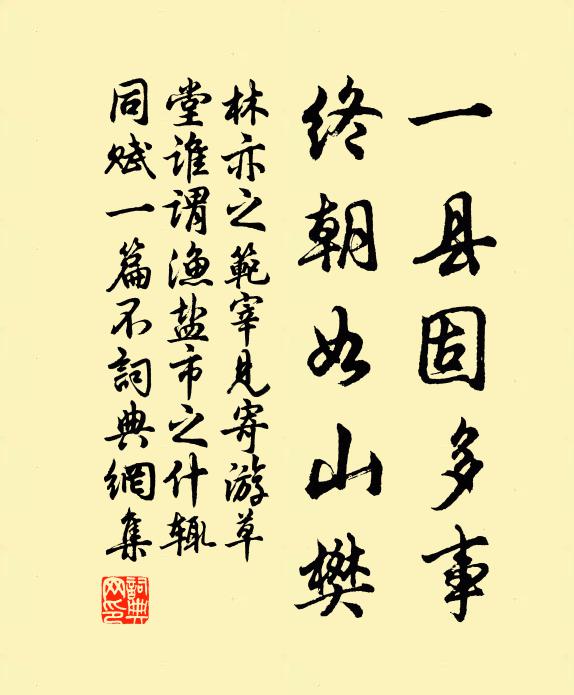 一县固多事
终朝如山樊
林亦之範宰見寄游草
堂谁谓渔盐市之什辄
同赋一篇不詞典網集
詞典网印